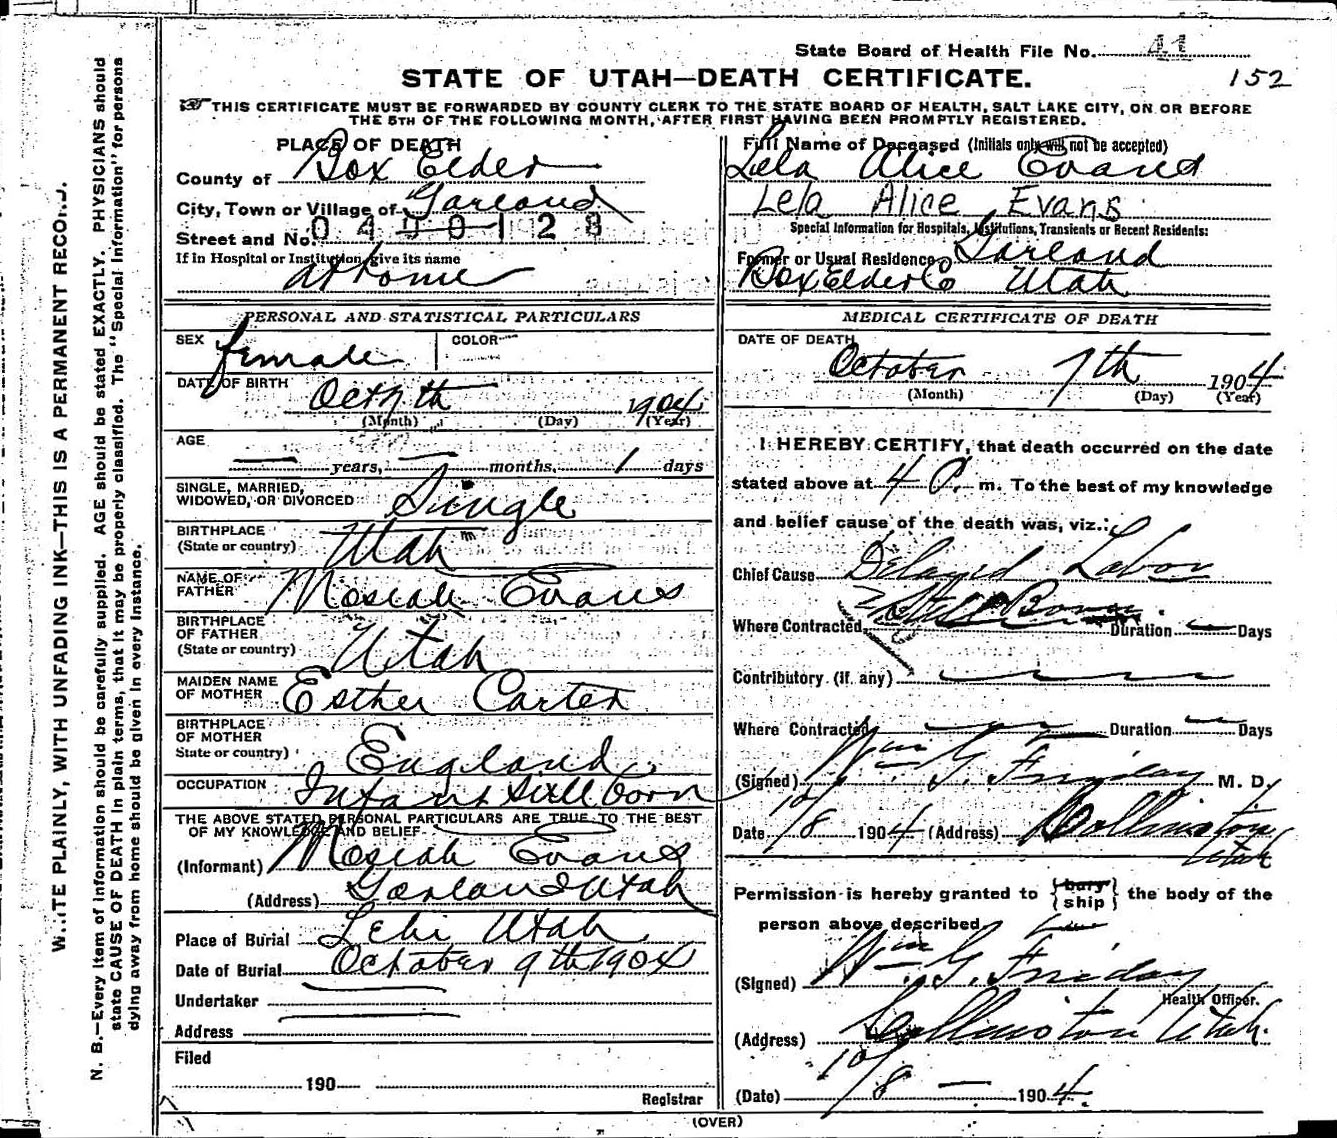 State Board of Health File No. 41
STATE OF UTAH—DEATH CERTIFICATE.
152
THIS CERTIFICATE MUST BE FORWARDED BY COUNTY CLERK TO THE STATE BOARD OF HEALTH, SALT LAKE CITY, ON OR BEFORE
THE 5TH OF THE FOLLOWING MONTH, AFTER FIRST HAVING BEEN PROMPTLY REGISTERED.
PLACE OF DEATH
County of Box Elder
City, Town or Village of Garland
Street and No. 0400128
If in Hospital or Institution, give its name
at home
Full Name of Deceased (Initials only will not be accepted)
Lela Alice Evans
Lela Alice Evans
Special Information for Hospitals, Institutions, Transients or Recent Residents:
Former or Usual Residence Garland
Box Elder Co Utah
PERSONAL AND STATISTICAL PARTICULARS
SEX female COLOR
DATE OF BIRTH
Oct 7th 1904
(Month) (Day) (Year)
AGE
— years, — months, 1 days
SINGLE, MARRIED,
WIDOWED, OR DIVORCED Single
BIRTHPLACE
(State or country) Utah
NAME OF
FATHER Mosiah Evans
BIRTHPLACE
OF FATHER
(State or country) Utah
MAIDEN NAME
OF MOTHER Esther Carter
BIRTHPLACE
OF MOTHER
State or country) England
OCCUPATION Infant still born
THE ABOVE STATED PERSONAL PARTICULARS ARE TRUE TO THE BEST
OF MY KNOWLEDGE AND BELIEF
(Informant) Mosiah Evans
(Address) Garland Utah
Place of Burial Lehi Utah
Date of Burial October 9th 1904
Undertaker
Address
Filed
190
Registrar
MEDICAL CERTIFICATE OF DEATH
DATE OF DEATH
October 7th 1904
(Month) (Day) (Year)
I HEREBY CERTIFY, that death occurred on the date
stated above at 4 P. m. To the best of my knowledge
and belief cause of the death was, viz.:
Chief Cause Delayed Labor
Where Contracted Still Born Duration — Days
Contributory (if any)
Where Contracted Duration — Days
(Signed) Wm G. Friday M. D.
Date 10/8 1904 (Address) Collinston
Utah
Permission is hereby granted to {bury ship} the body of the
person above described
(Signed) Wm G. Friday
Health Officer.
(Address) Collinston Utah.
(Date) 10/8 — 1904.
(OVER)
WRITE PLAINLY, WITH UNFADING INK—THIS IS A PERMANENT RECORD.
N. B.—Every item of information should be carefully supplied. AGE should be stated EXACTLY. PHYSICIANS should
state CAUSE OF DEATH in plain terms, that it may be properly classified. The "Special Information" for persons
dying away from home should be given in every instance.